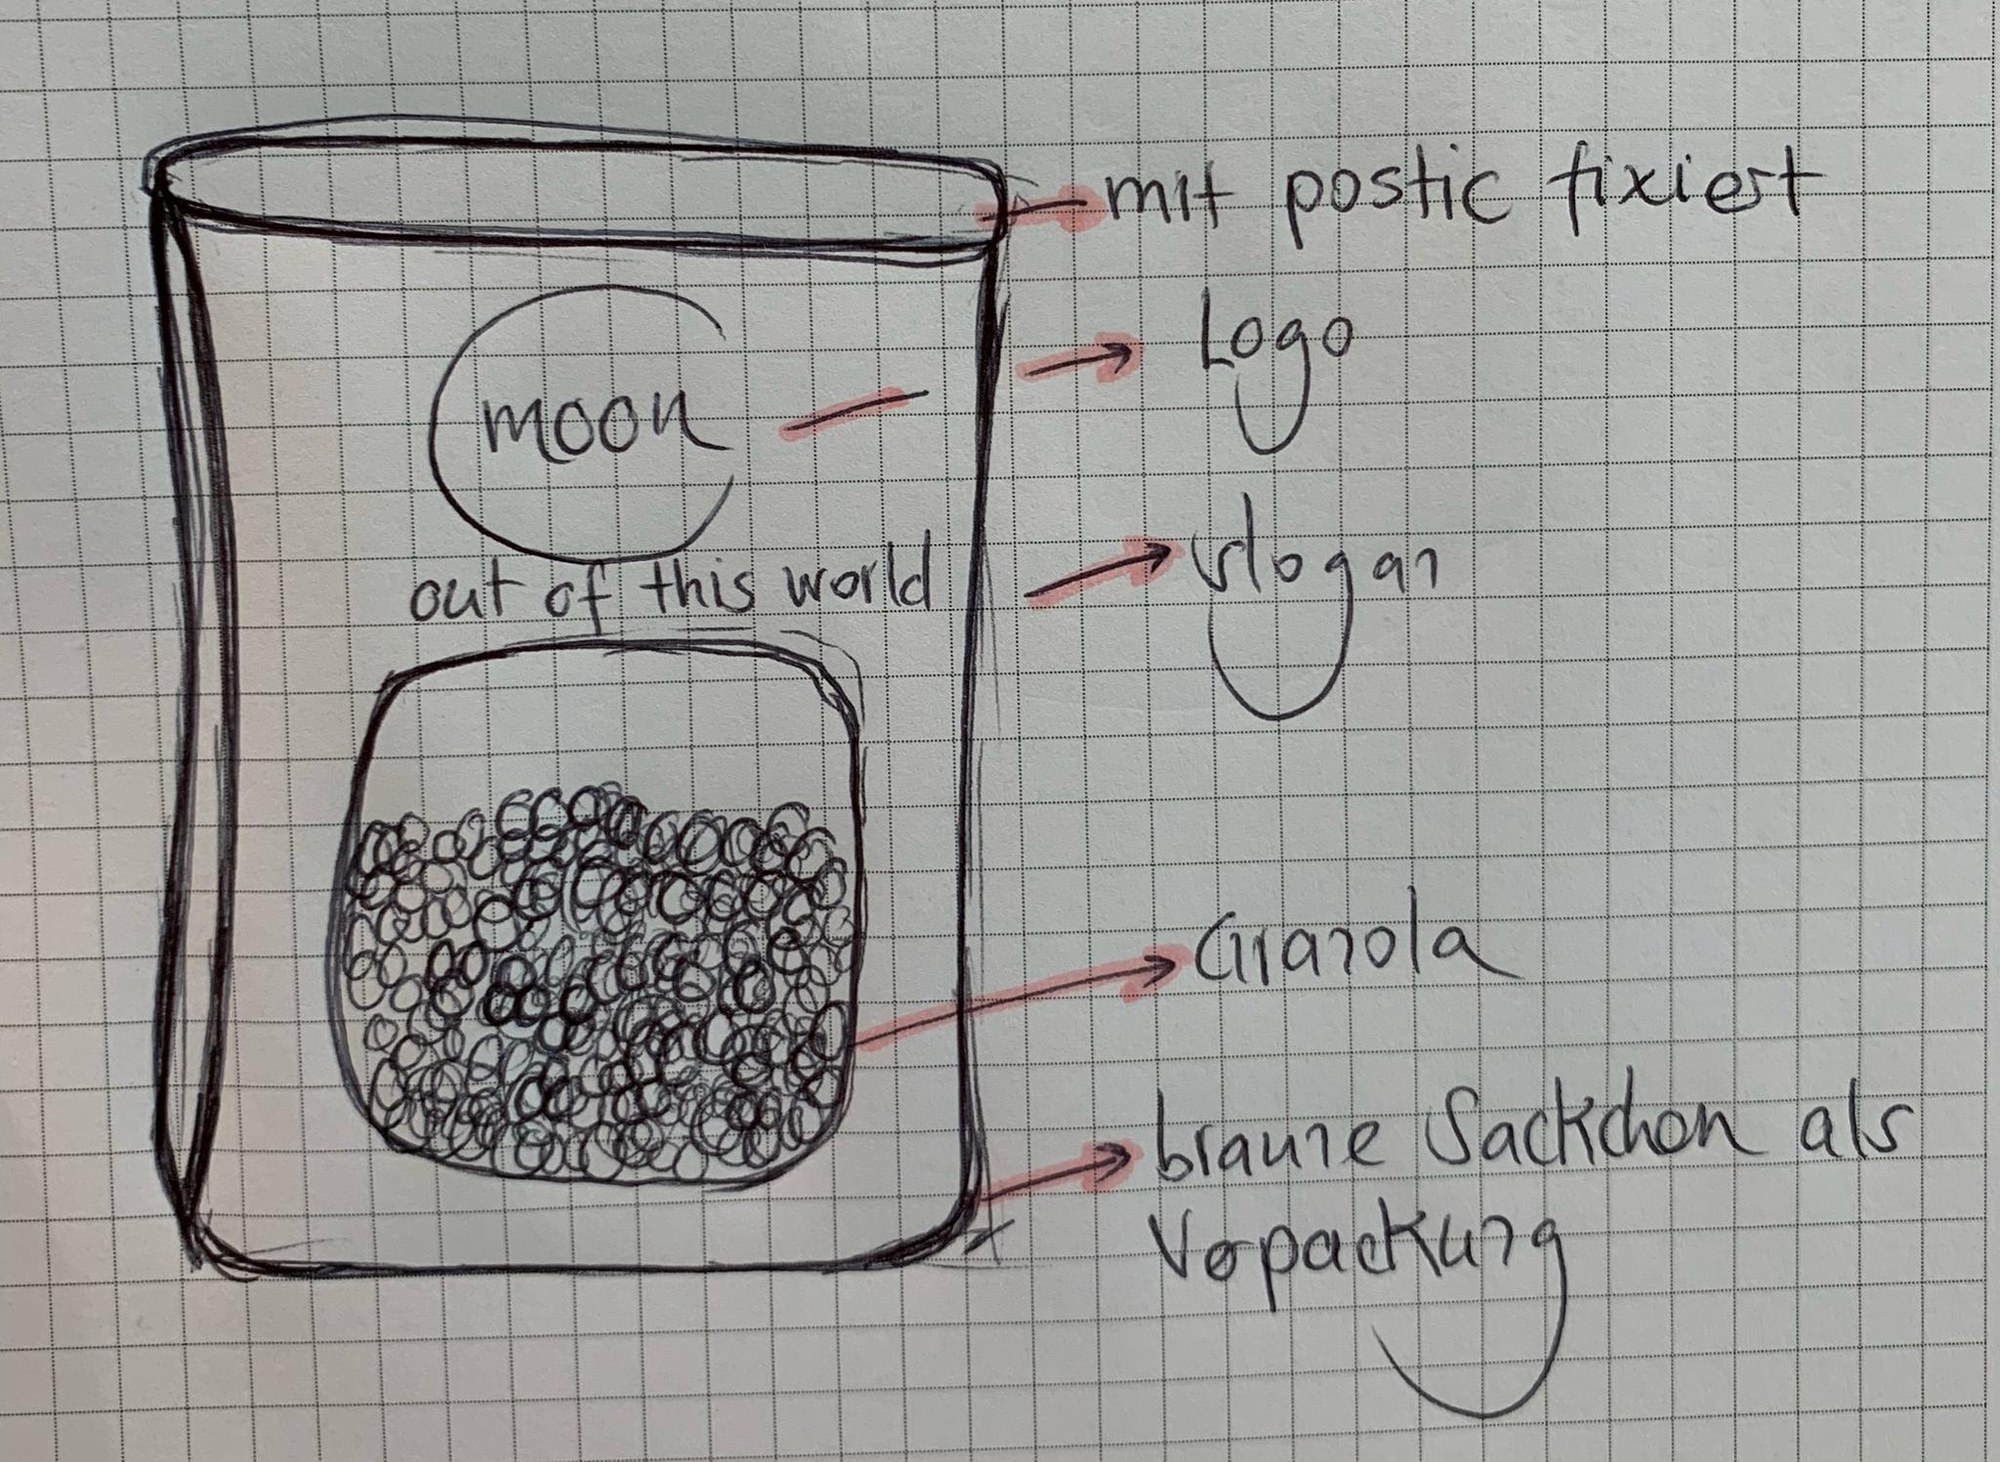 mit postic fixiert
Logo
moon
slogan
out of this world
Granola
braune Säckchen als
Verpackung